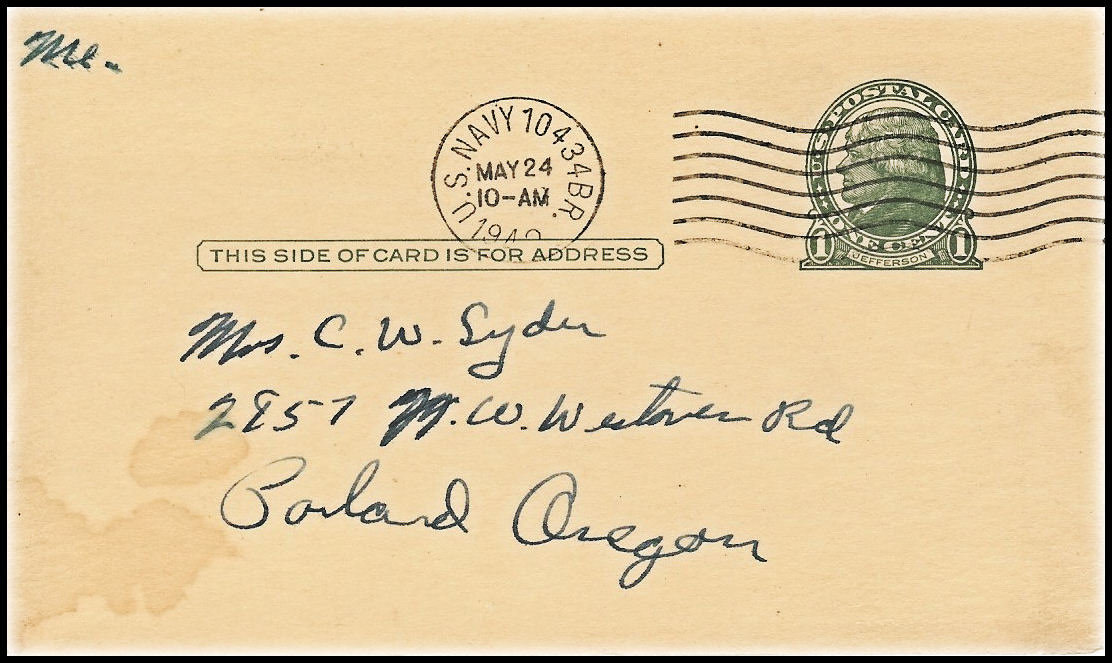 Me.
U.S. NAVY 10434 BR.
MAY 24
10-AM
U.S. POSTAL CARD
ONE CENT
1 1
JEFFERSON
THIS SIDE OF CARD IS FOR ADDRESS
Mrs. C. W. Syder
2857 N.W. Westover Rd
Porland Oregon